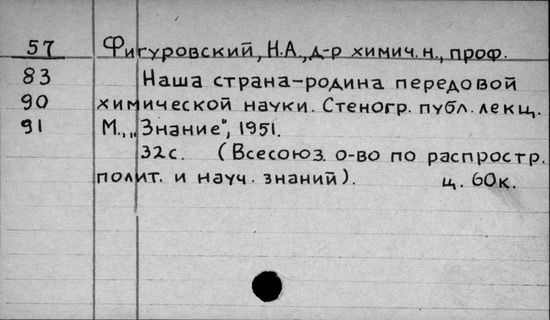 57 Фигуровский, Н.А., д-р химич.н., проф.
83 Наша страна-родина передовой
90 химической науки. Стеногр. публ. лекц.
91 М., „Знание", 1951.
32с. (Всесоюз. о-во по распростр.
полит. и науч. знаний). ц. 60к.